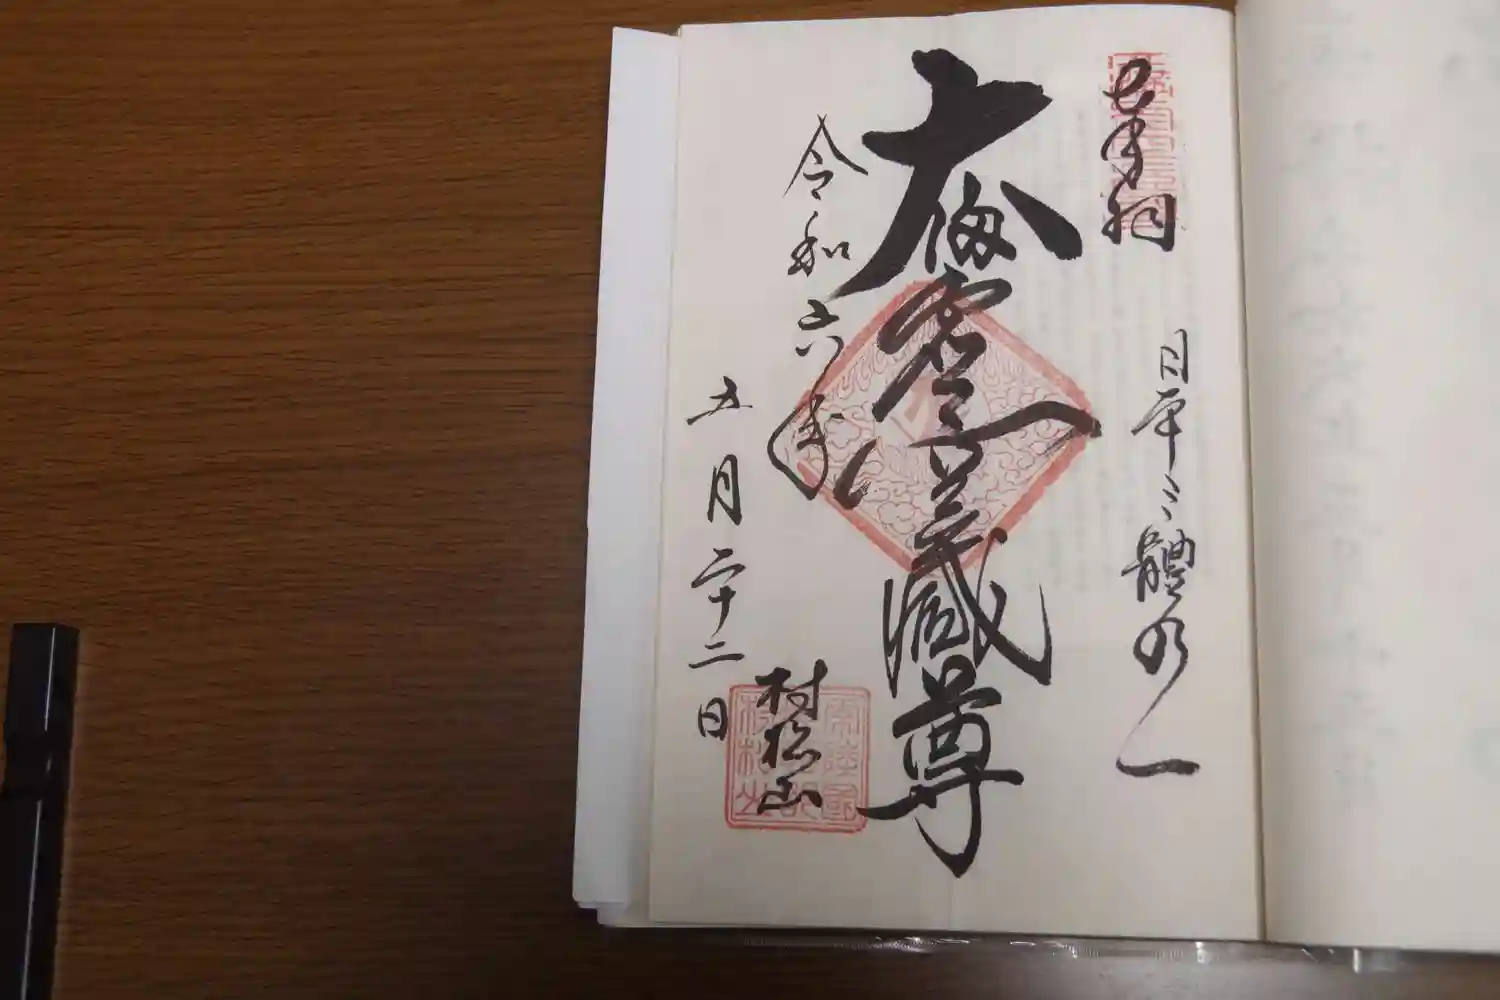 日本三體乃一
大満虚空蔵尊
令和六年
五月二十二日
村松山